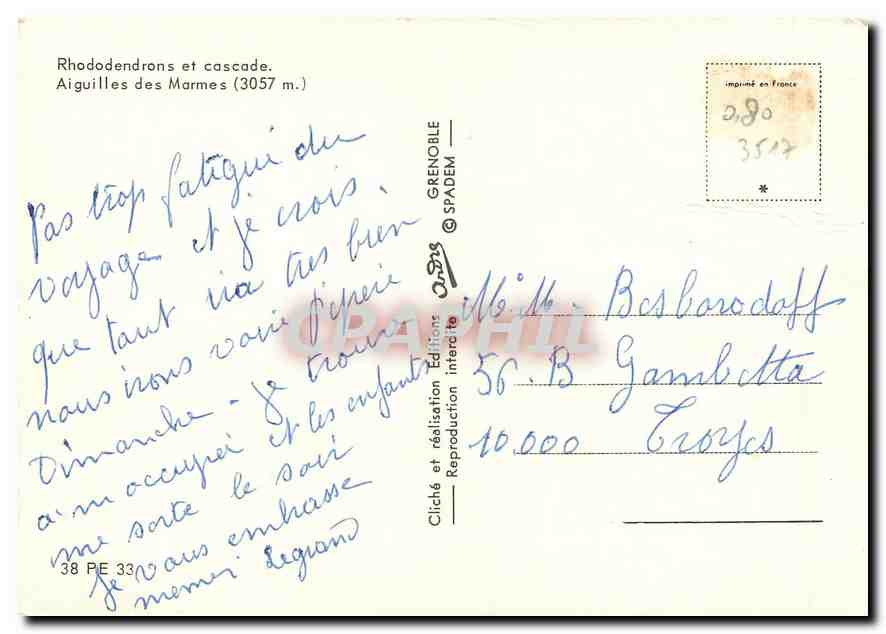 Rhododendrons et cascade.
Aiguilles des Marmes (3057 m.)
Pas trop fatigué du
voyage et je crois
que tout ira très bien
nous irons voir
Dimanche - je trouve
a m occuper et les enfants
me sorte le soir
Je vous embrasse
memé Legrand
38 PE 33
Cliché et réalisation Editions André GRENOBLE
Reproduction interdite © SPADEM
imprimé en France
0,80
3517
*
M. M. Besborodoff
56. B Gambetta
10.000 Troyes
CPAPHIL